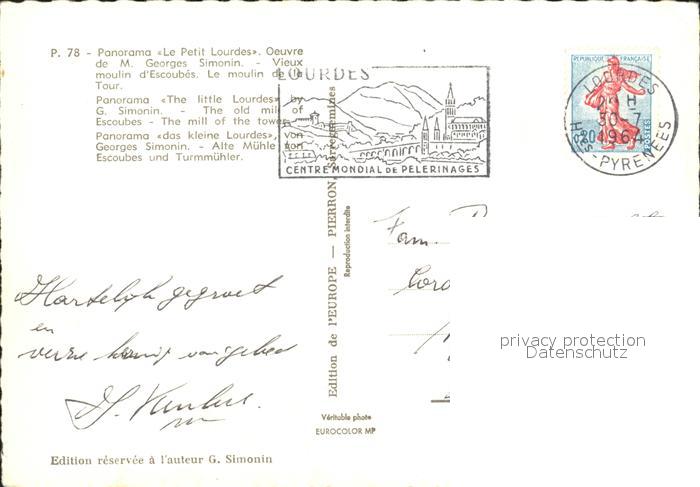 P. 78 - Panorama «Le Petit Lourdes». Oeuvre
de M. Georges Simonin. - Vieux
moulin d'Escoubés. Le moulin de la
Tour.
Panorama «The little Lourdes» by
G. Simonin. - The old mill of
Escoubes - The mill of the tower
Panorama «das kleine Lourdes», von
Georges Simonin. - Alte Mühle von
Escoubes und Turmmühler.
LOURDES
CENTRE MONDIAL DE PELERINAGES
REPUBLIQUE FRANÇAISE
POSTES
0,20
LOURDES
30-7
1964
HTES-PYRENEES
Edition de l'EUROPE — PIERRON, Sarreguemines
Reproduction interdite
Fam.
Hartelijk gegroet
en
privacy protection
Datenschutz
Véritable photo
EUROCOLOR MP
Edition réservée à l'auteur G. Simonin